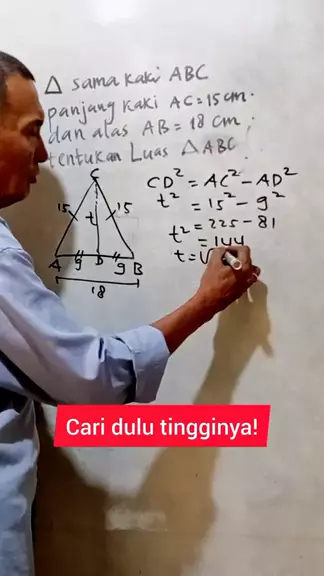 △ sama kaki ABC
panjang kaki AC = 15 cm.
dan alas AB = 18 cm.
tentukan Luas △ABC!
C
15 t 15
A 9 D 9 B
18
CD² = AC² - AD²
t² = 15² - 9²
t² = 225 - 81
= 144
t = √
Cari dulu tingginya!